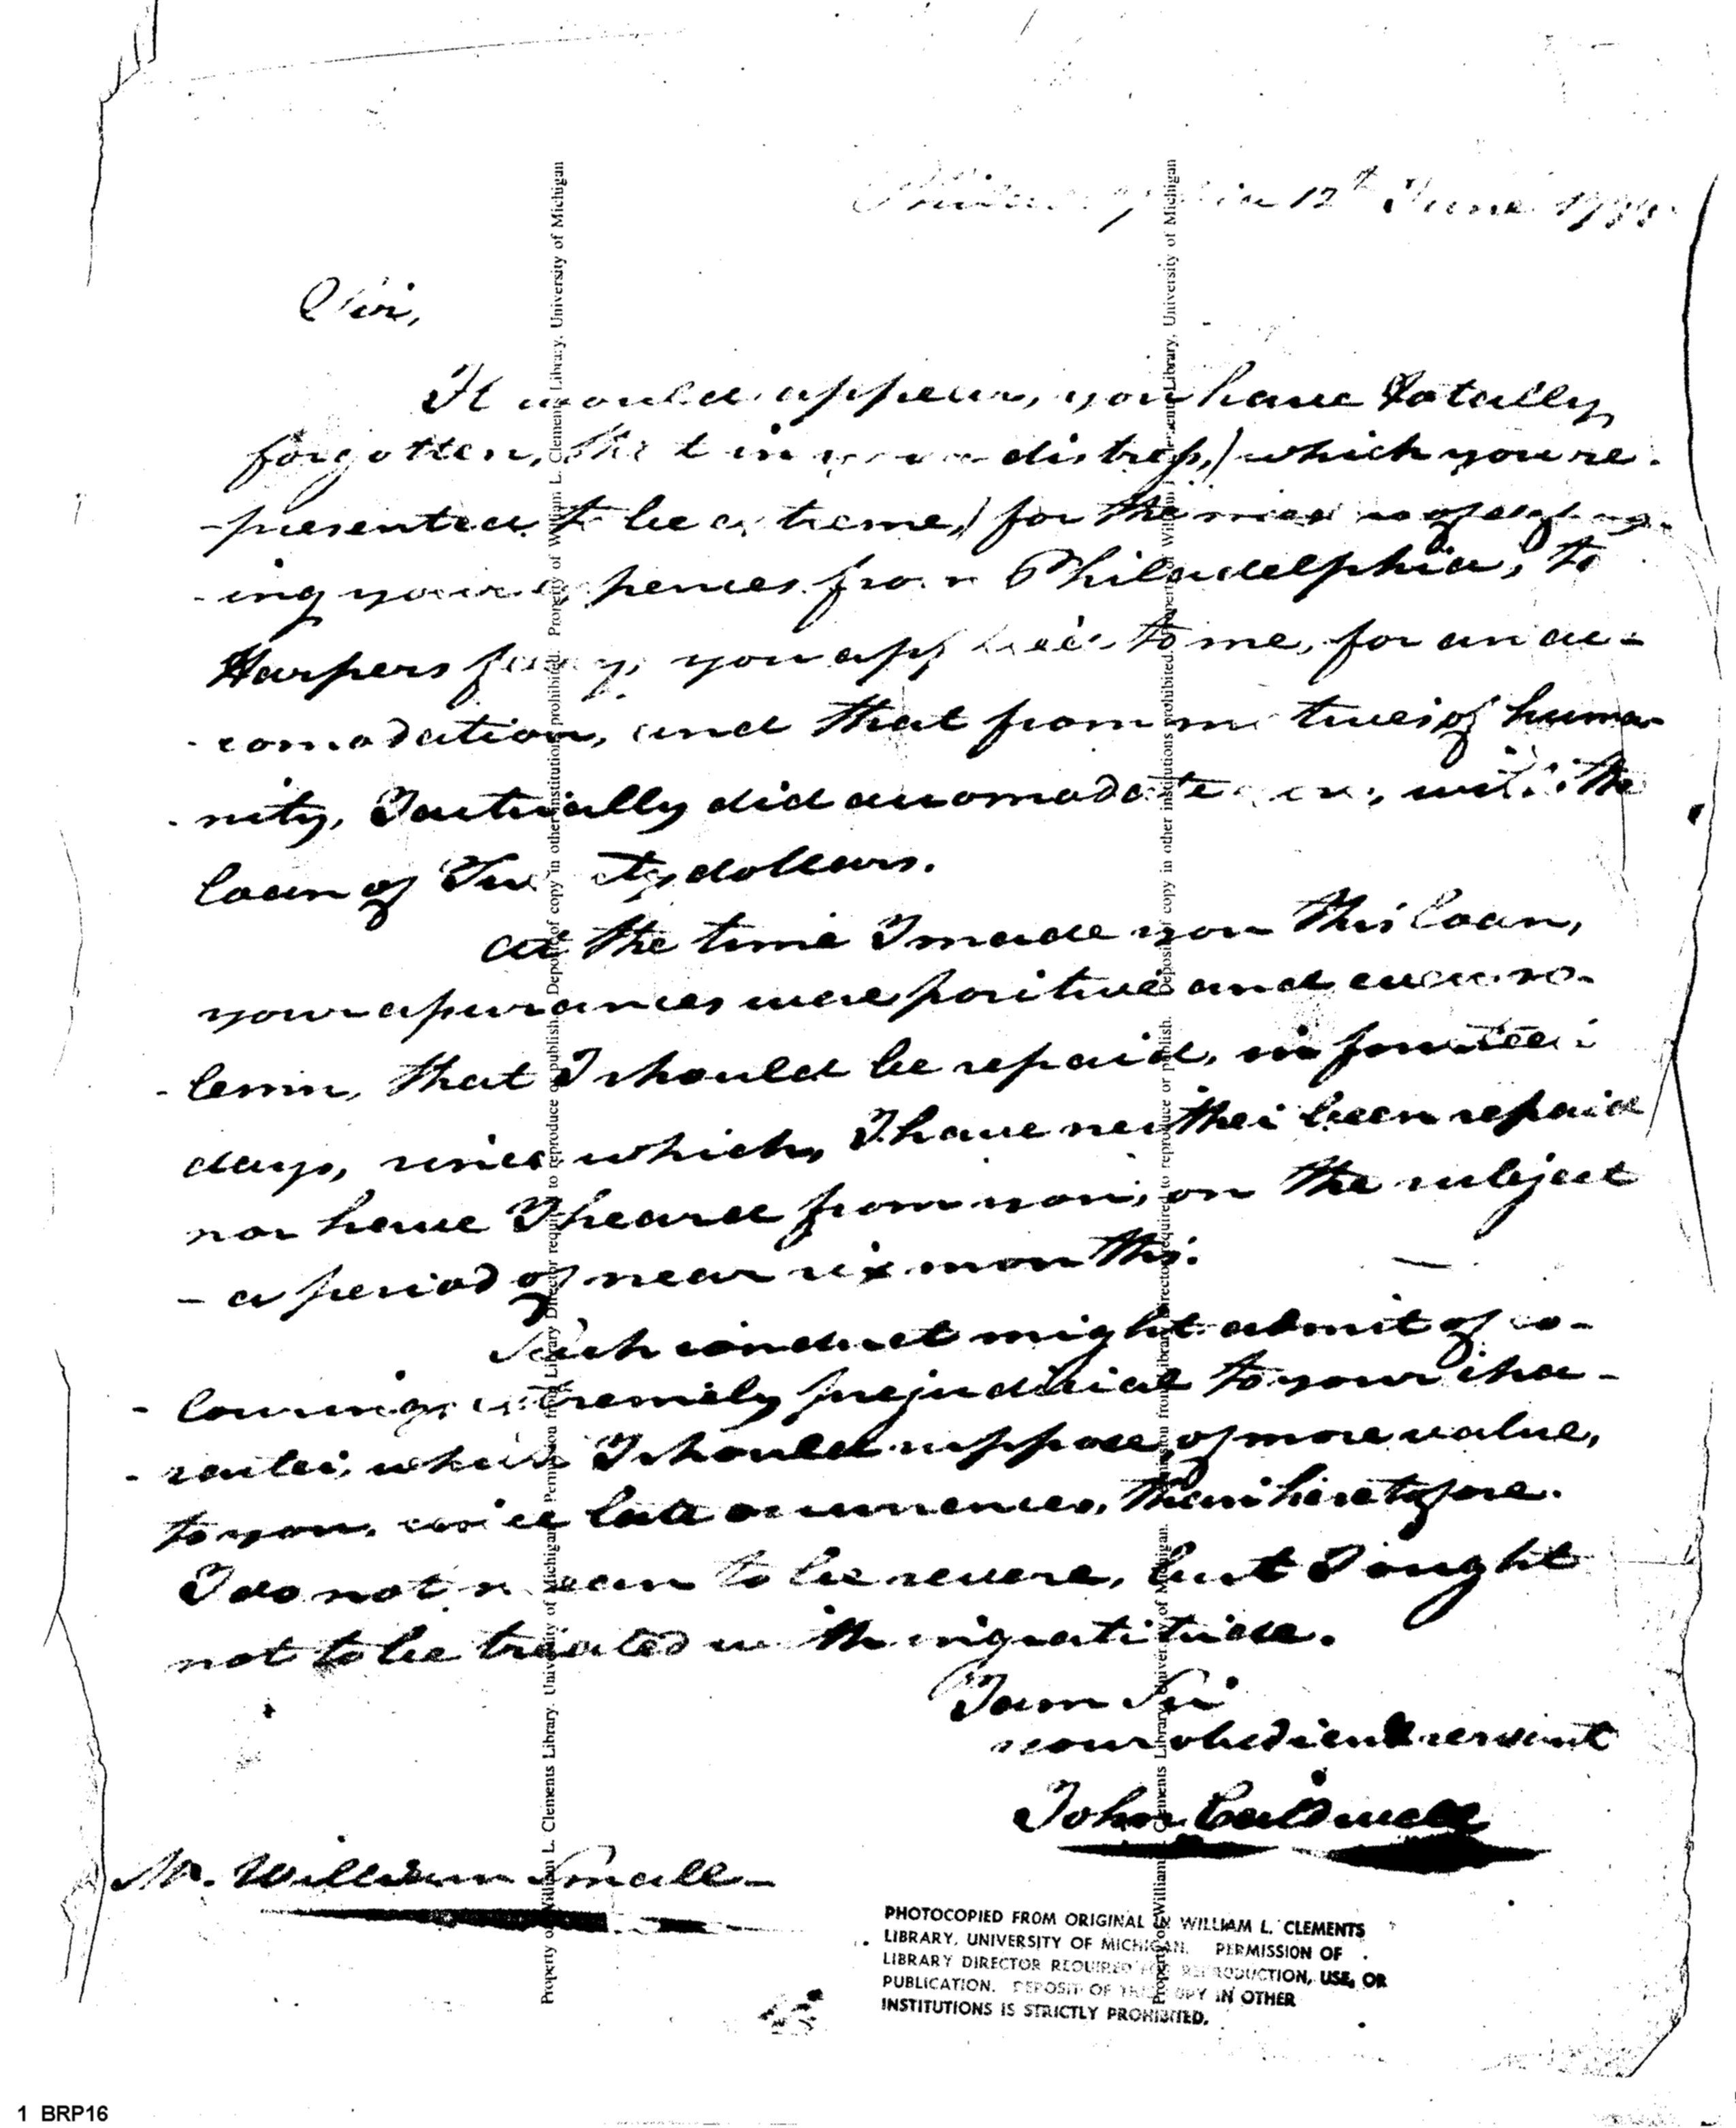 12th June
Sir,
It would appear, you have totally
forgotten, that in your distress, (which you re-
-presented to be extreme,) for the means of defray-
-ing your expences from Philadelphia, to
Harpers ferry, you applied to me, for an ac-
-comodation, and that from motives of huma-
-nity, I actually did accomodate you, with the
loan of Twenty dollars.
At the time I made you this loan,
your assurances were positive and even so-
-lemn, that I should be repaid, in fourteen
days, since which, I have neither been repaid
nor have I heard from you, on the subject
- a period of near six months. —
Such conduct might admit of co-
-louring, extremely prejudicial to your cha-
-racter, which I should suppose, of more value,
to you, since late occurrences, than heretofore.
I do not mean to be severe, but I ought
not to be treated with ingratitude.
I am Sir
your obedient servant
John Caldwell
Mr. William Small -
PHOTOCOPIED FROM ORIGINAL IN WILLIAM L. CLEMENTS
LIBRARY, UNIVERSITY OF MICHIGAN. PERMISSION OF
LIBRARY DIRECTOR REQUIRED FOR REPRODUCTION, USE, OR
PUBLICATION. DEPOSIT OF THIS COPY IN OTHER
INSTITUTIONS IS STRICTLY PROHIBITED.
Property of William L. Clements Library, University of Michigan. Permission from Library Director required to reproduce or publish. Deposit of copy in other institutions prohibited. Property of William L. Clements Library, University of Michigan
Property of William L. Clements Library, University of Michigan. Permission from Library Director required to reproduce or publish. Deposit of copy in other institutions prohibited. Property of William L. Clements Library, University of Michigan
1 BRP16